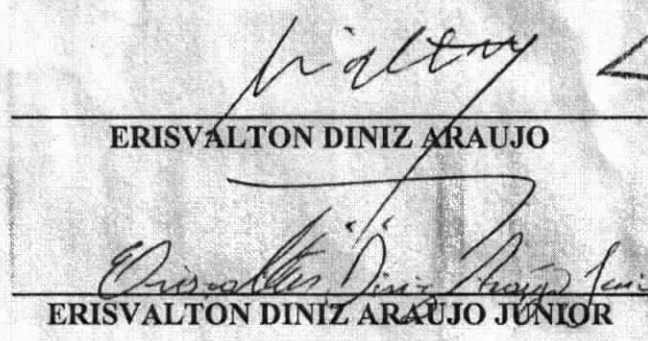 ERISVALTON DINIZ ARAUJO
Erisvalton Diniz Araújo Juni
ERISVALTON DINIZ ARAUJO JUNIOR